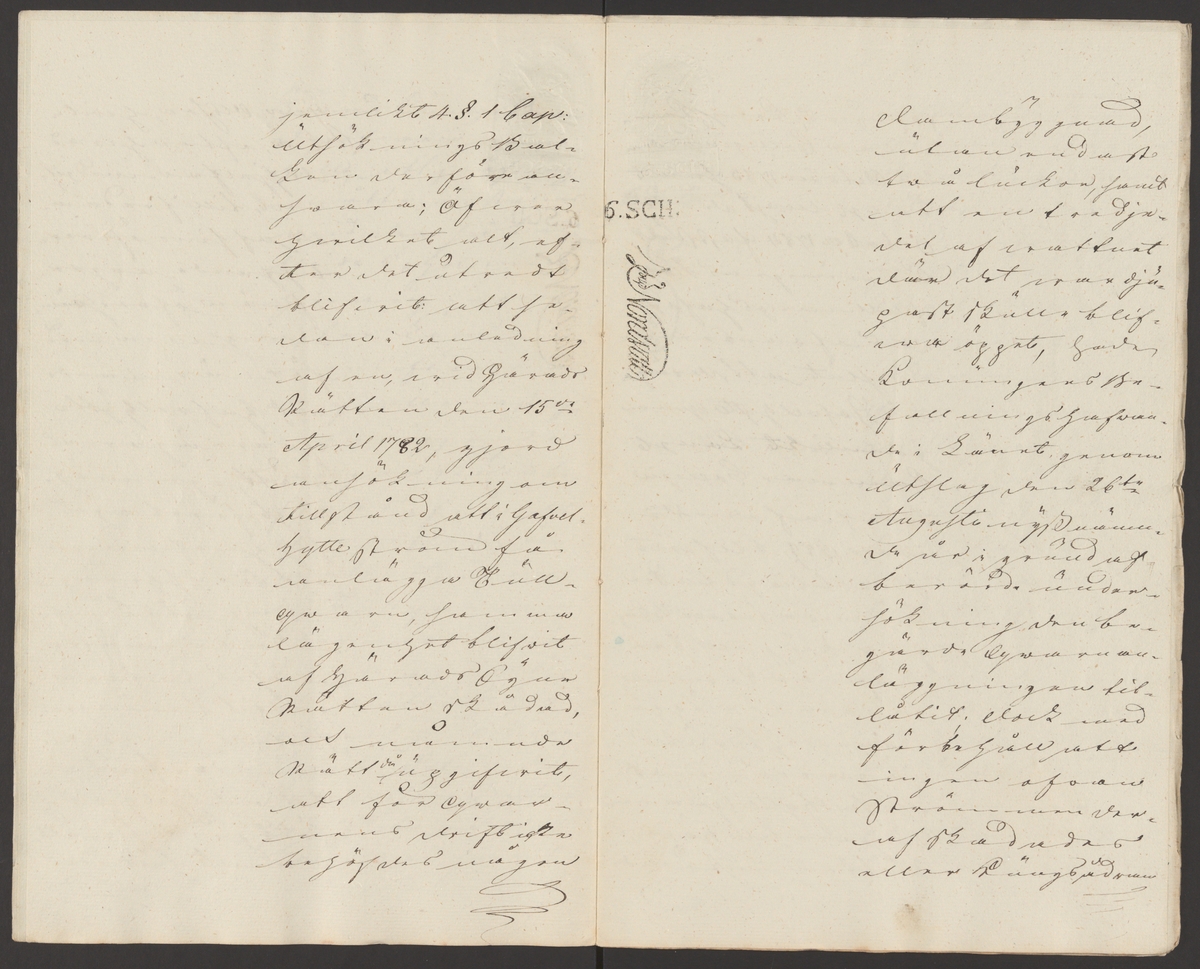 jemlikt 4. §. 1 Cap:
Utsöknings Bal-
ken derföre an-
svara; Öfver
hvilket alt, ef-
ter det utredt
blifvit: att se-
dan i anledning
af en, vid Härads
Rätten den 15de
April 1782, gjord
ansökning om
tillstånd att i Gafvel-
hytte ström få
anlägga Tull-
qvarn, samma
lägenhet blifvit
af Härads Syne
Rätten skådad,
och nämnde
Rätt då upgifvit,
att för qvar-
nens drift icke
behöfdes någon
6. SCH.
dambyggnad,
utan endast
två luckor, samt
att en tredje-
del af vattnet
där det var dju-
past skulle blif-
va öppet, hade
Konungens Be-
fallningshafvan-
de i Länet genom
Utslag den 26te
Augusti nyssnämn-
de år i grund af
berörde under-
sökning den be-
gärde qvarnan-
läggningen til-
låtit; dock med
förbehåll att
ingen ofvan
Strömmen der-
af skadades
eller Kungsådran